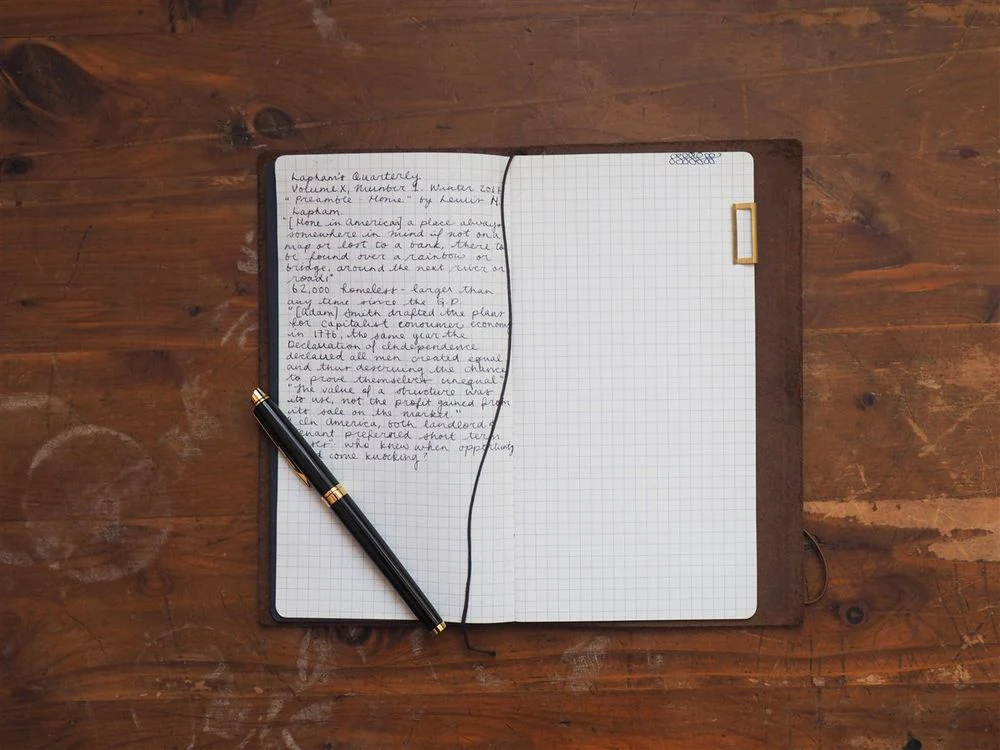 Lapham's Quarterly
Volume X, Number 1. Winter
"Preamble - Home" by Lewis H.
Lapham.
"[Home in America] a place always
somewhere in mind if not on a
map or lost to a bank, there to
be found over a rainbow or
bridge, around the next river or
road."
62,000 homeless - larger than
any time since the G.D.
"[Adam] Smith drafted the plans
for capitalist consumer economy
in 1776, the same year the
Declaration of Independence
declared all men created equal
and thus deserving the chance
to prove themselves unequal"
"The value of a structure was
its use, not the profit gained from
its sale on the market."
"In America, both landlord &
tenant preferred short term
who knew when opportunity
come knocking?